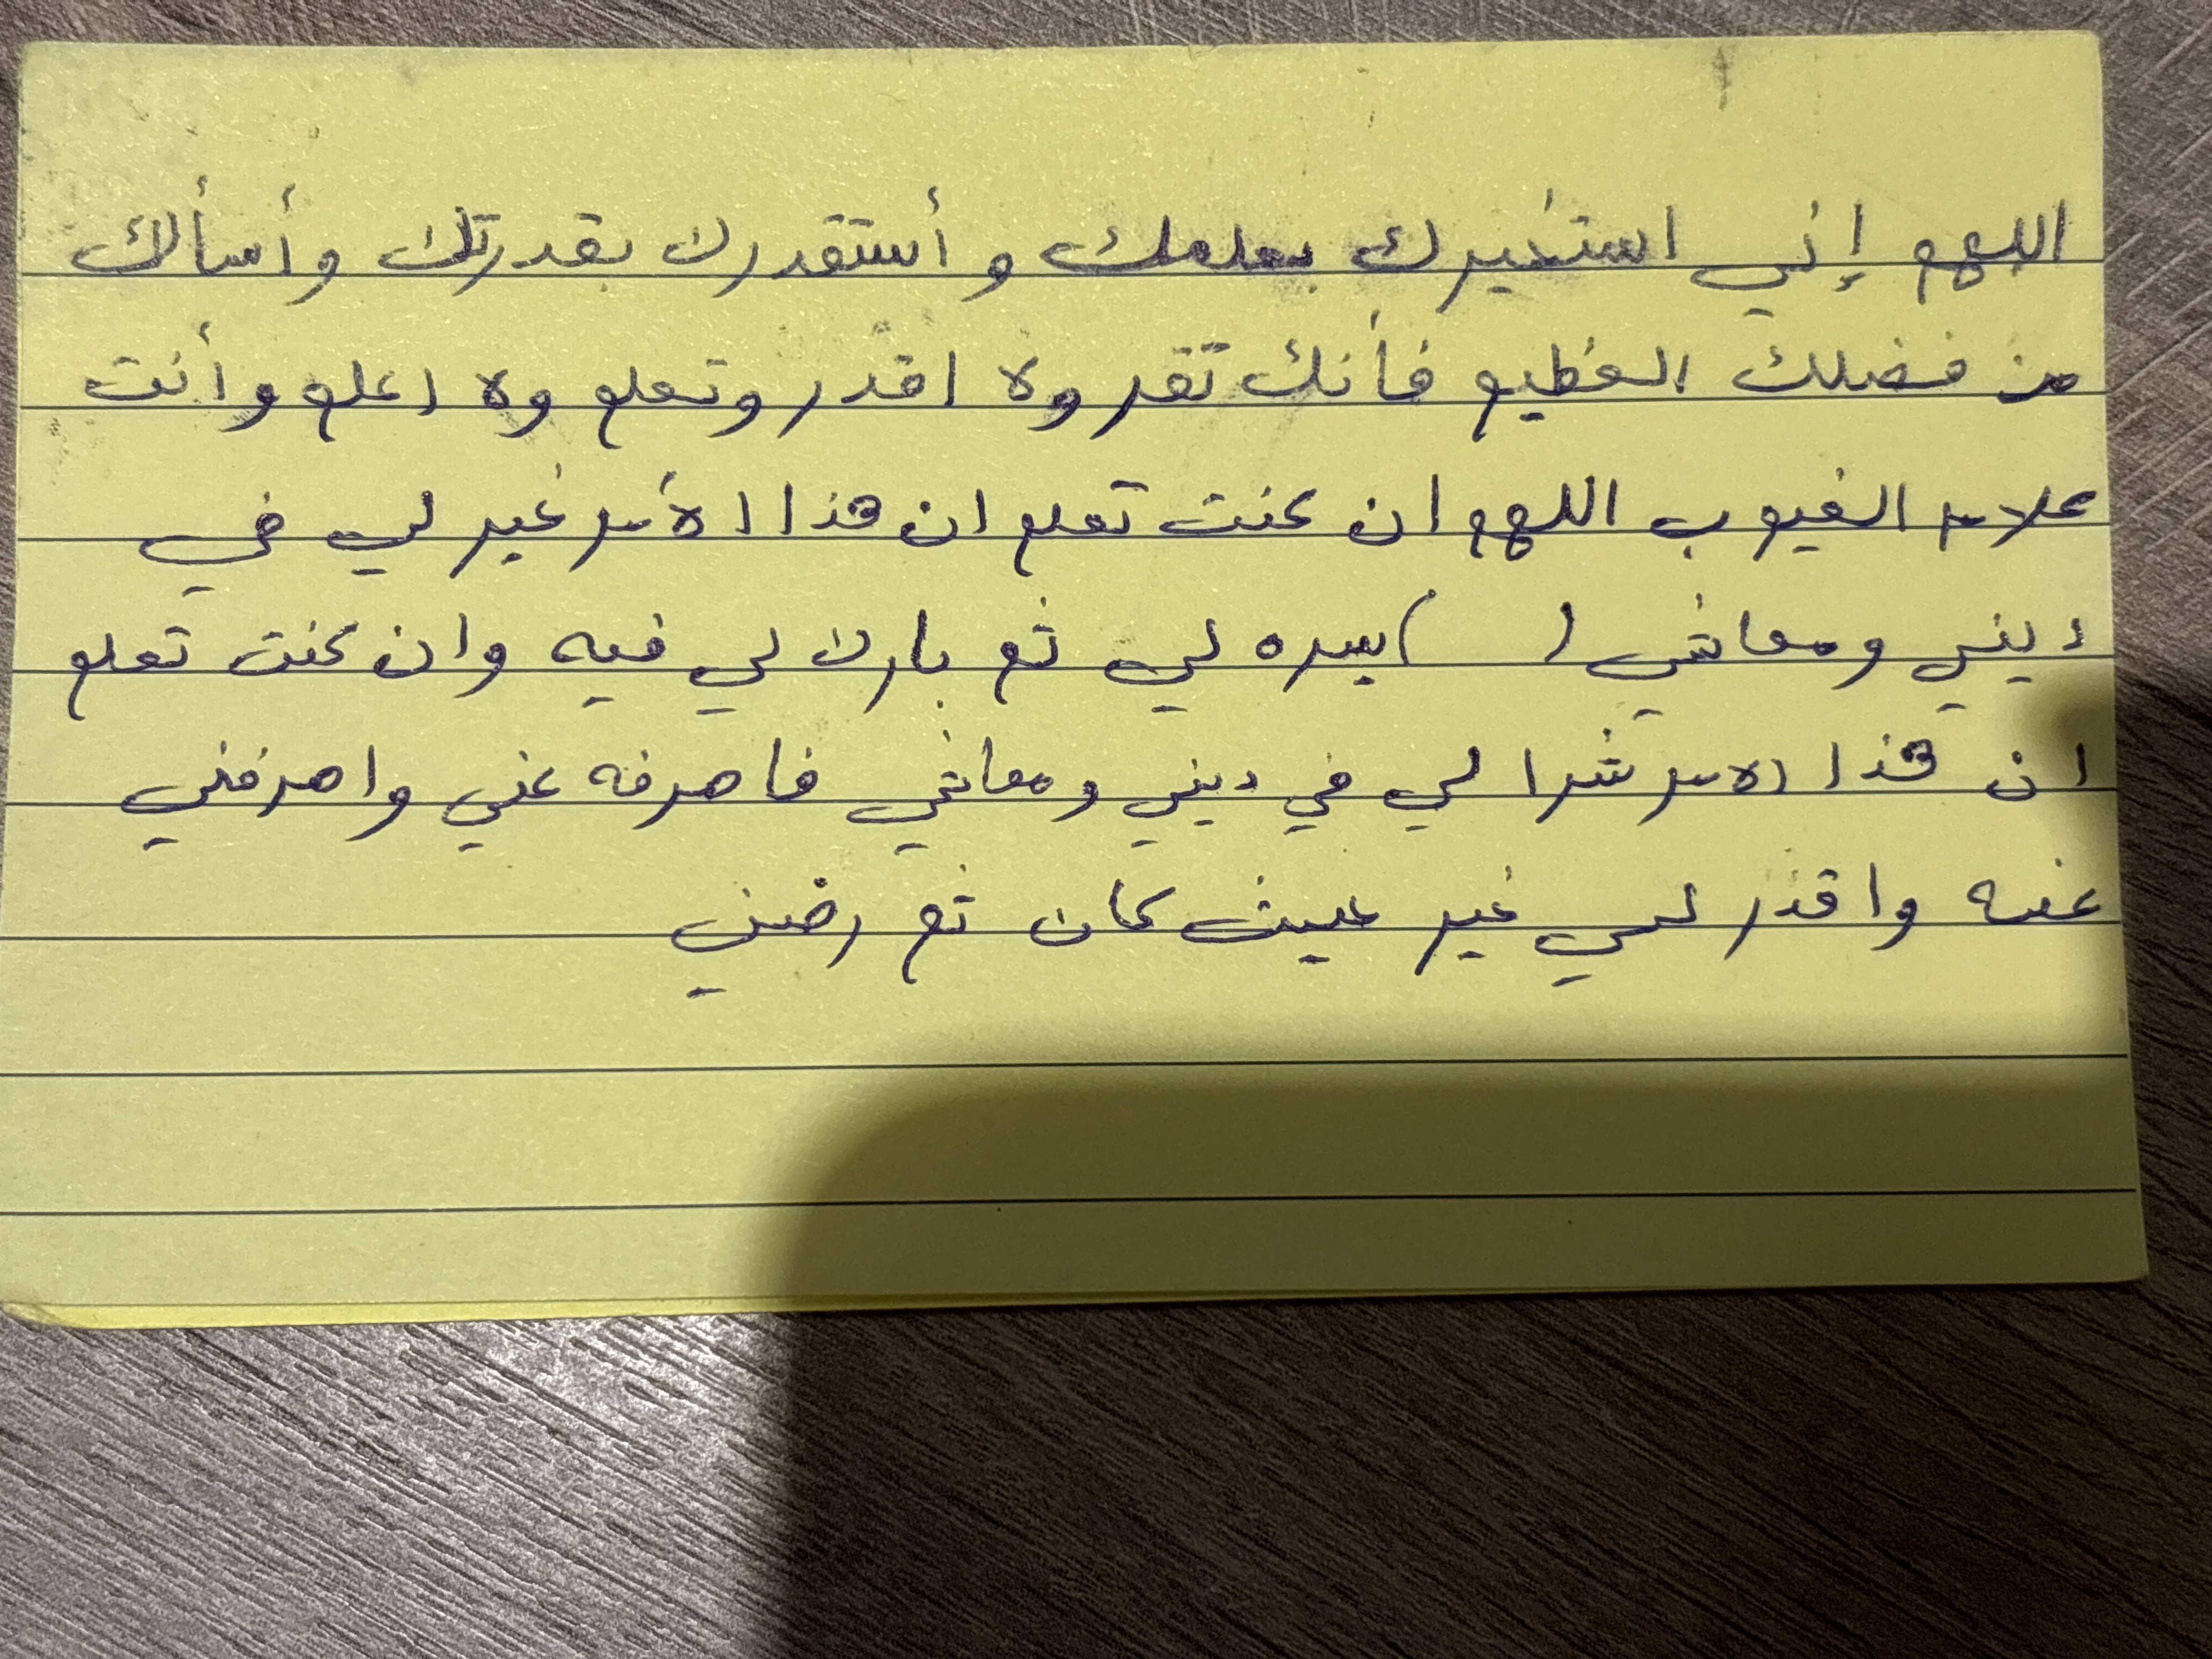 اللهم إني استخيرك بعلمك و أستقدرك بقدرتك وأسألك
من فضلك العظيم فأنك تقدر ولا اقدر وتعلم ولا اعلم وأنت
علام الغيوب اللهم ان كنت تعلم ان هذا الأمر خير لي في
ديني ومعاشي ( ) يسره لي ثم بارك لي فيه وان كنت تعلم
ان هذا الامر شرا لي في ديني ومعاشي فاصرفه عني واصرفني
عنه واقدر لي خير حيث كان ثم رضني